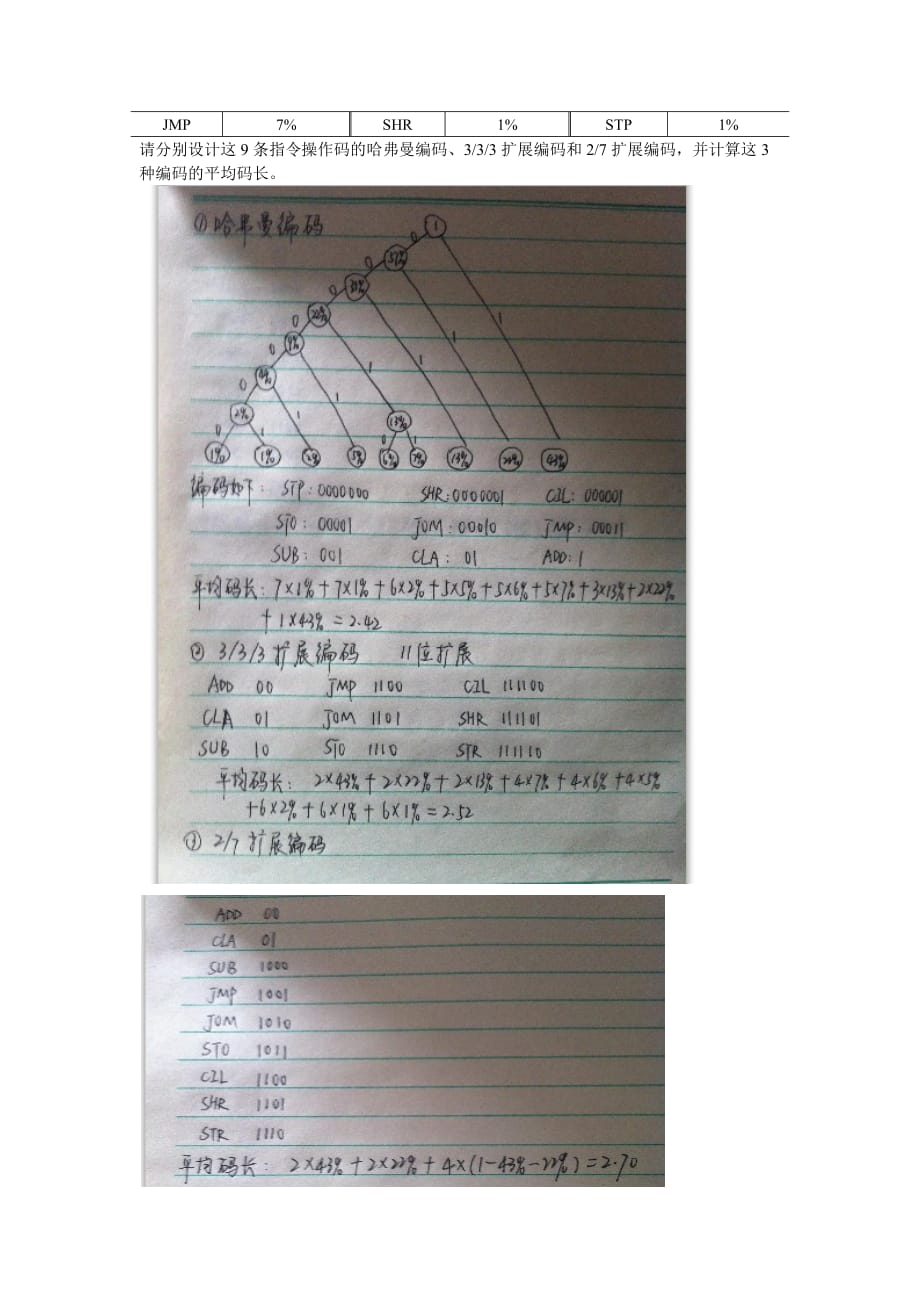 JMP 7% SHR 1% STP 1%
请分别设计这 9 条指令操作码的哈弗曼编码、3/3/3 扩展编码和 2/7 扩展编码，并计算这 3
种编码的平均码长。
① 哈弗曼编码
1
0
57%
0
0
22%
1
0
9%
0
1
1
4%
0
1
2%
1
13%
0 1 0 1
1% 1% 2% 5% 6% 7% 13% 22% 43%
编码如下: STP:0000000 SHR:0000001 CIL:000001
STO:00001 JOM:00010 JMP:00011
SUB:001 CLA:01 ADD:1
平均码长:7×1%+7×1%+6×2%+5×5%+5×6%+5×7%+3×13%+2×22%
+1×43%=2.42
② 3/3/3 扩展编码 11位扩展
ADD 00 JMP 1100 CIL 111100
CLA 01 JOM 1101 SHR 111101
SUB 10 STO 1110 STR 111110
平均码长: 2×43%+2×22%+2×13%+4×7%+4×6%+4×5%
+6×2%+6×1%+6×1%=2.52
③ 2/7 扩展编码
ADD 00
CLA 01
SUB 1000
JMP 1001
JOM 1010
STO 1011
CIL 1100
SHR 1101
STR 1110
平均码长: 2×43%+2×22%+4×(1-43%-22%)=2.70